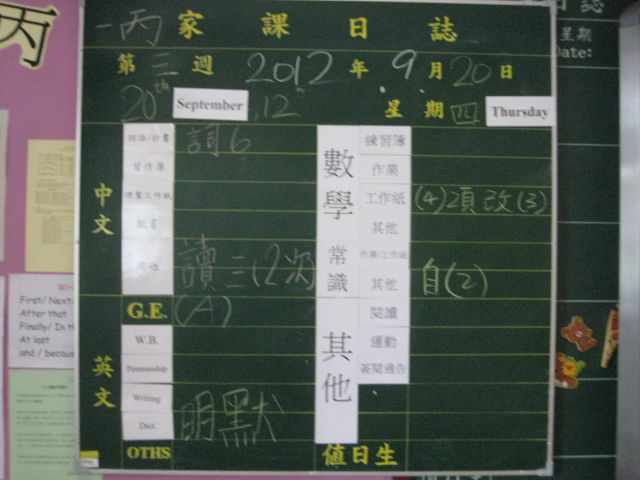 丙
一丙 家課日誌
第三週 2012年 9月20日
20th September, 12 星期四 Thursday
中文
詞語/抄書 詞6
習作簿
課業工作紙
默書
其他 讀三(2次)
數學
練習簿
作業
工作紙 (4)項改(3)
其他
常識
作業/工作紙
其他 自(2)
G.E. (A)
英文
W.B.
Penmanship
Writing
Dict. 明默
OTHS
其他
閱讀
運動
簽閱通告
值日生
日誌
星期
Date:
First/ Next/
After that
Finally/ In th
At last
and / because